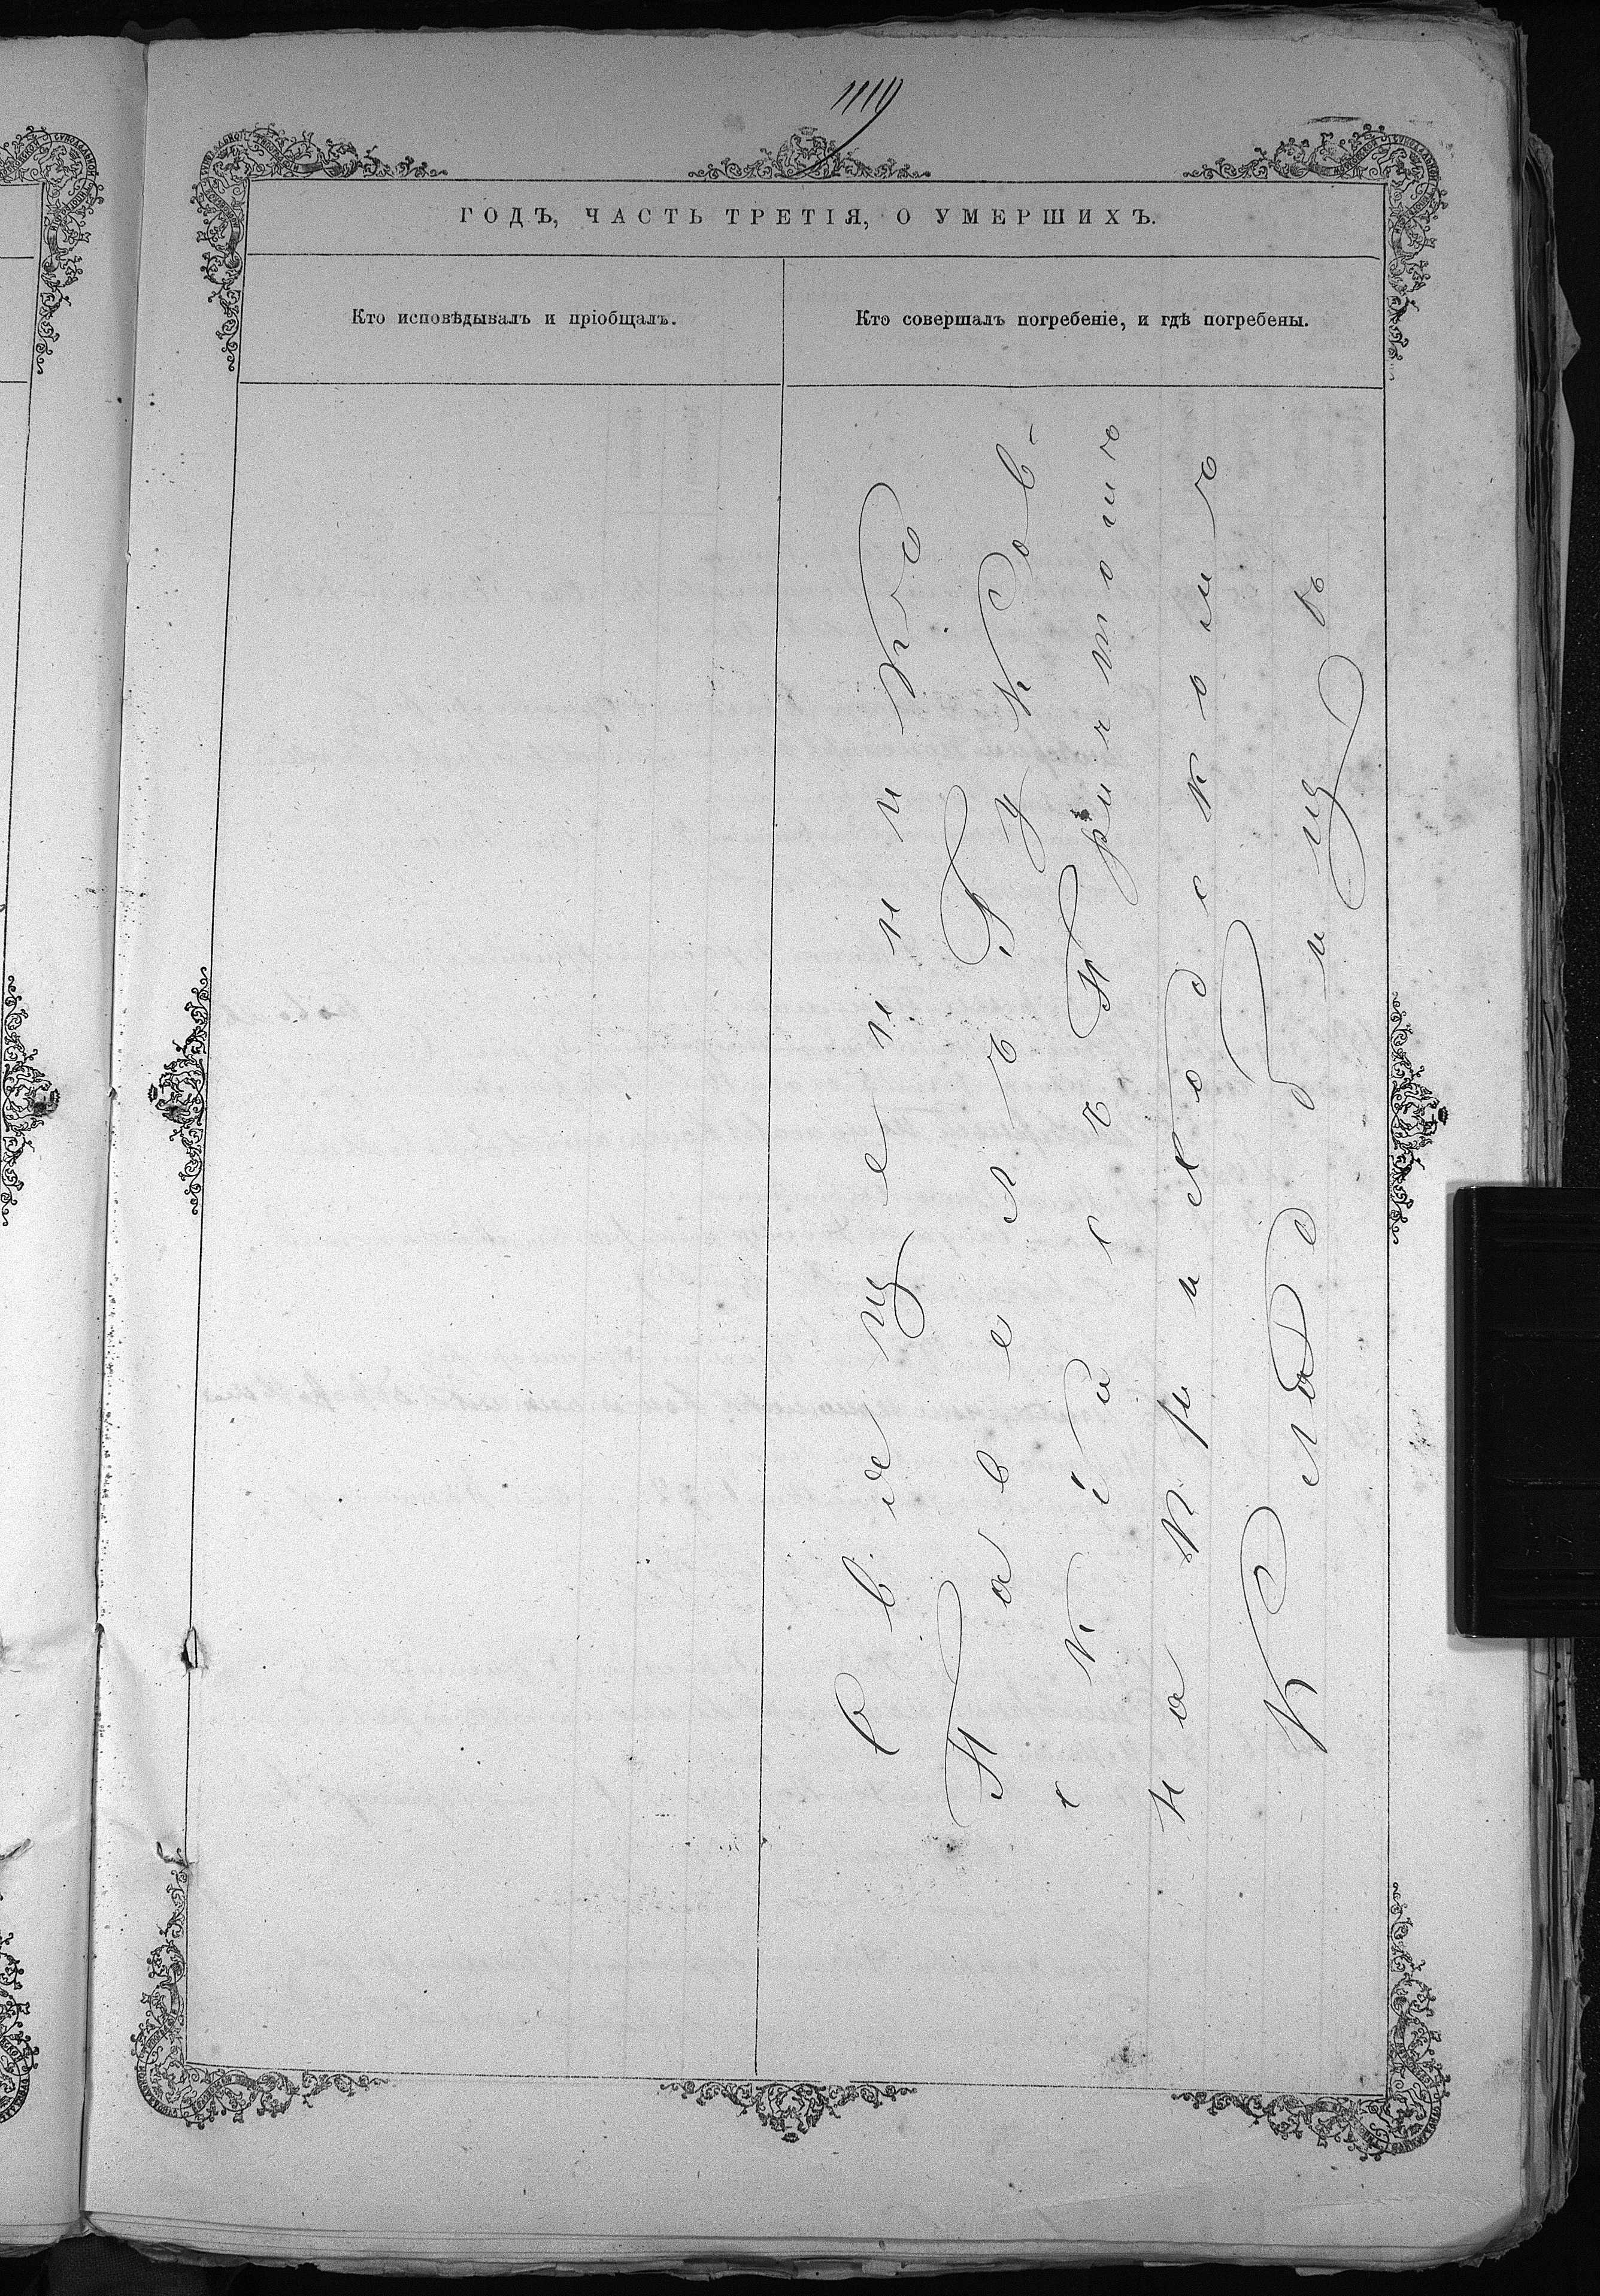 1119
ГОДЪ, ЧАСТЬ ТРЕТІЯ, О УМЕРШИХЪ.
Кто исповѣдывалъ и пріобщалъ.
Кто совершалъ погребеніе, и гдѣ погребены.
Священникъ
Павелъ Гуков-
скій съ Причтомъ
на приходскомъ
Кладбищѣ